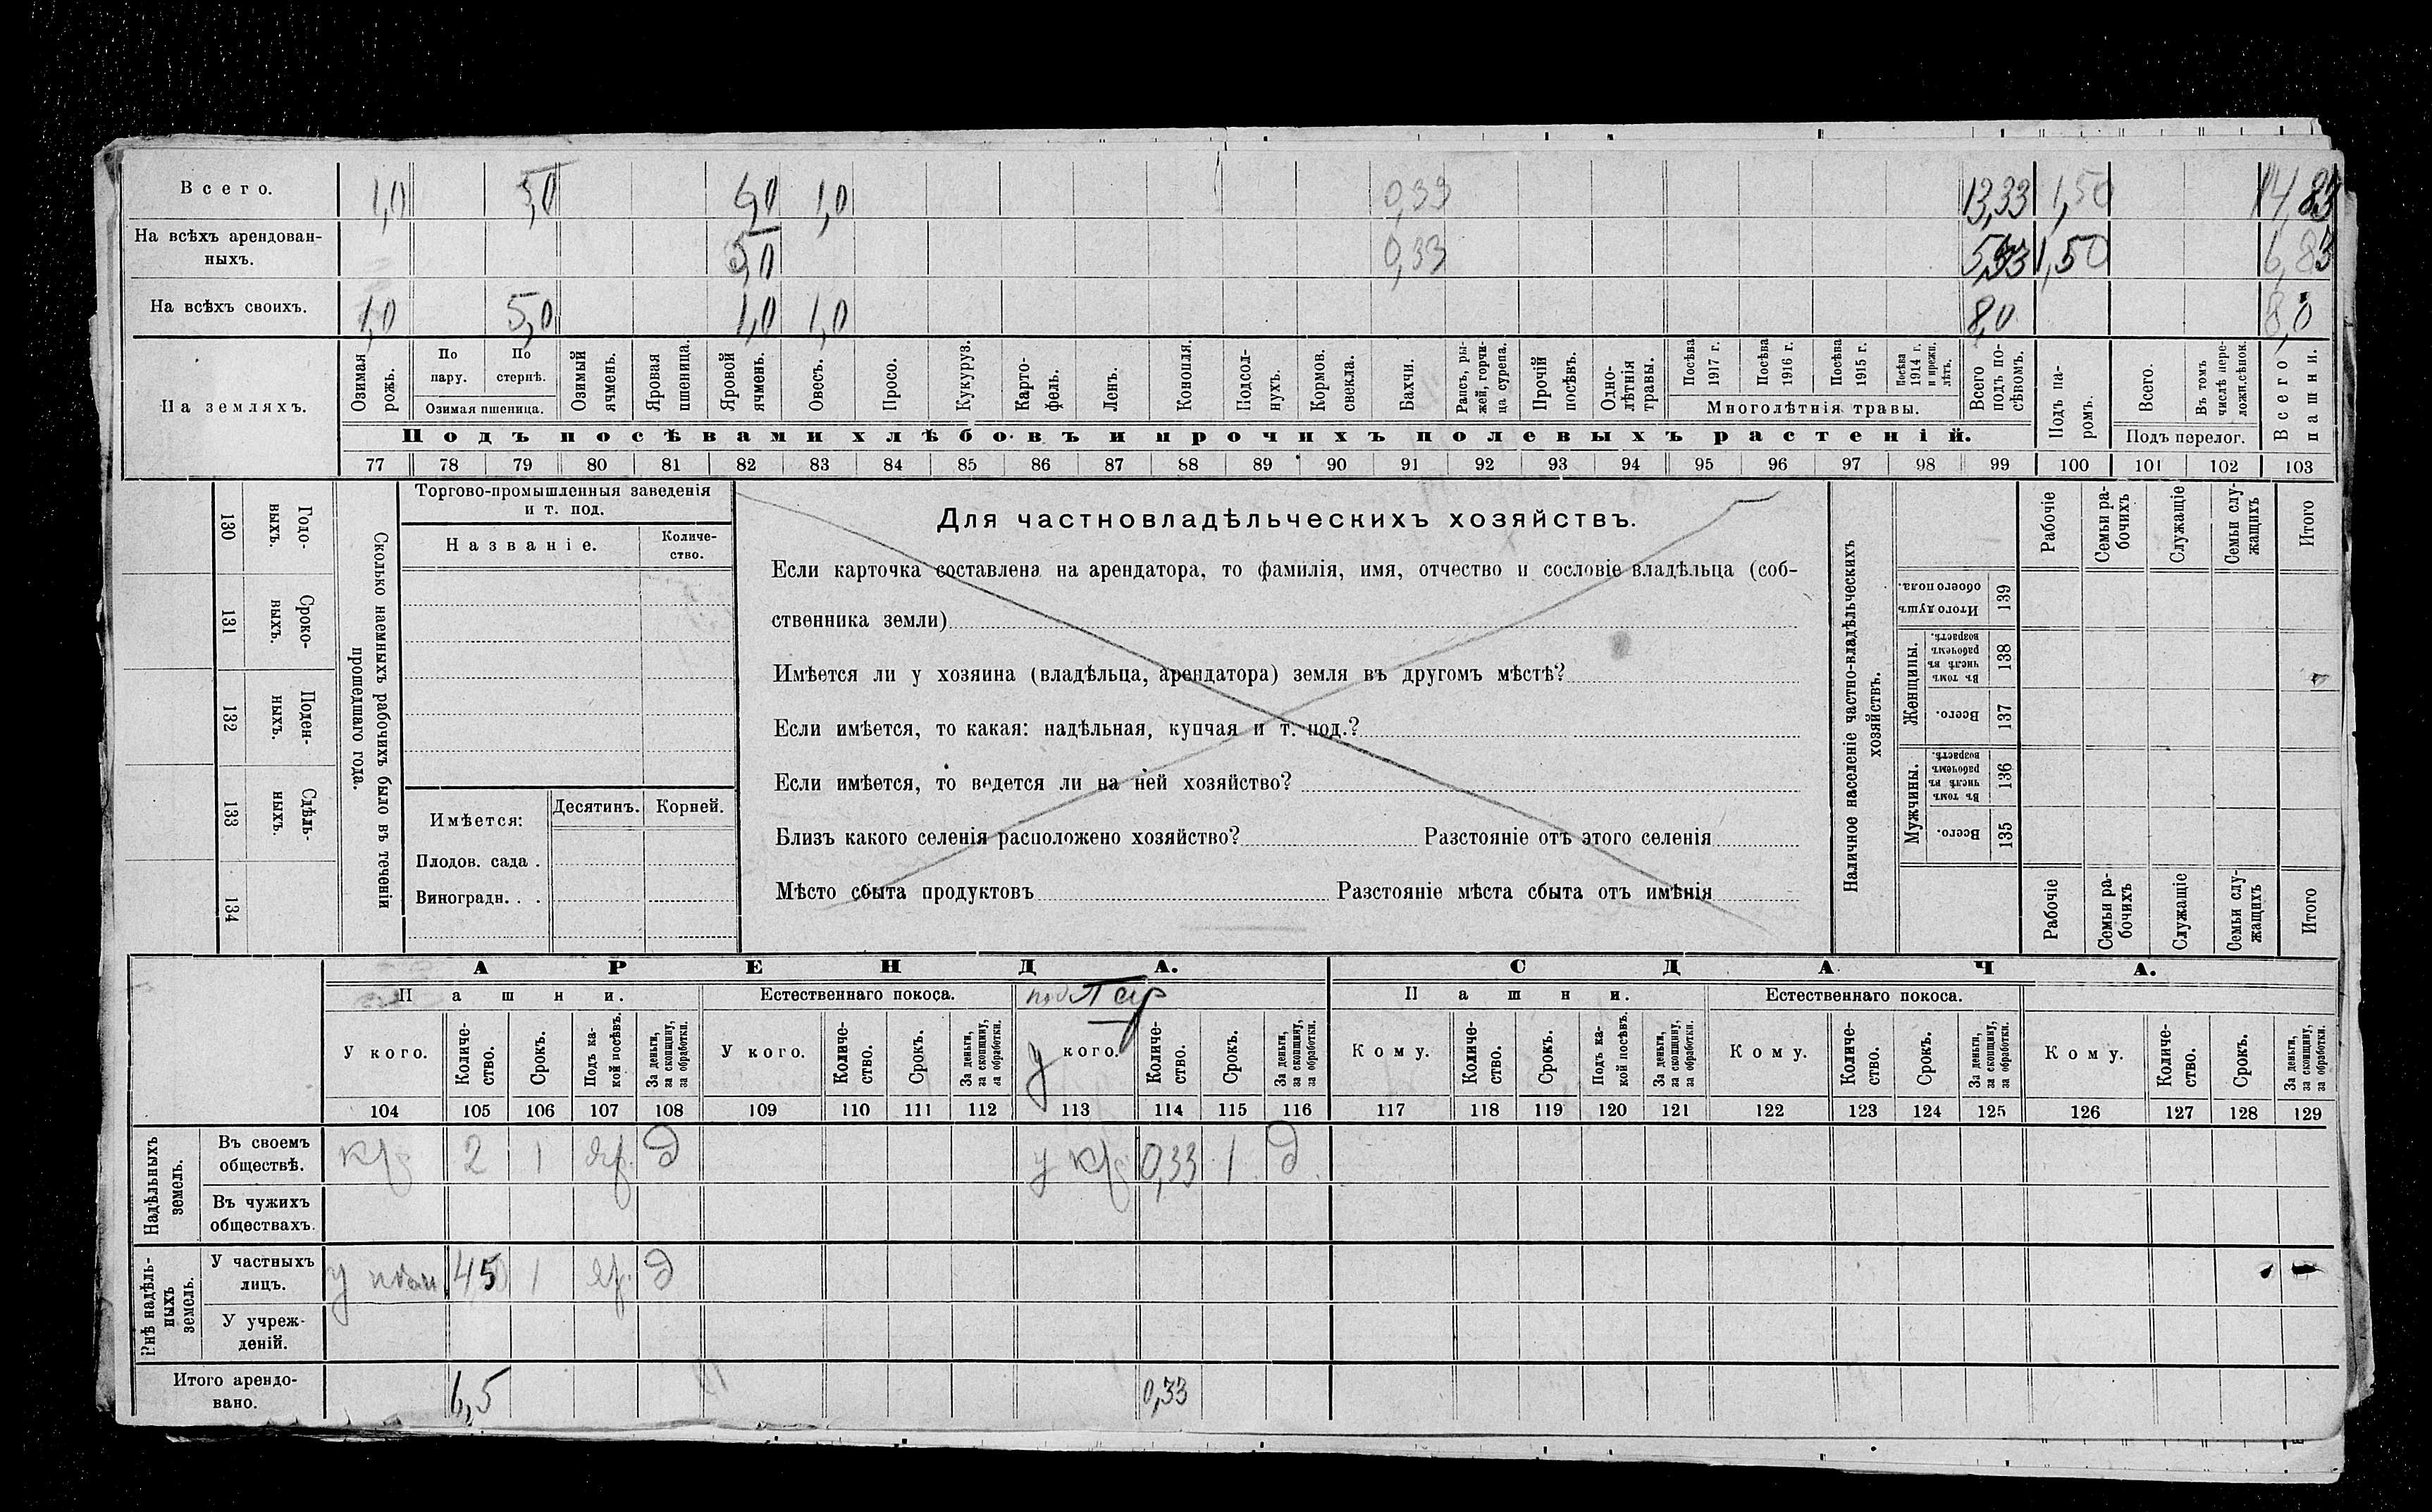 Всего. 1,0 5,0 1,0 0,33 13,33 1,50 14,83
На всѣхъ арендован-
ныхъ. 5,0 0,33 5,33 1,50 6,83
На всѣхъ своихъ. 1,0 5,0 1,0 1,0 8,0 8,0
На земляхъ.
Озимая рожь.
По пару.
По стернѣ.
Озимая пшеница.
Озимый ячмень.
Яровая пшеница.
Яровой ячмень.
Овесъ.
Просо.
Кукуруз.
Карто-
фель.
Ленъ.
Конопля.
Подсол-
нухъ.
Кормов. свекла.
Бахчи.
Рапсъ, ры-
жей, горчи-
ца сурепа.
Прочій посѣвъ.
Одно-
лѣтнія травы.
Посѣва 1917 г.
Посѣва 1916 г.
Посѣва 1915 г.
Посѣва 1914 г. и прежн. лѣтъ.
Многолѣтнія травы.
Всего подъ по-
сѣвомъ.
Подъ па-
ромъ.
Всего.
Въ томъ числѣ пере-
лож.сѣнок.
Подъ перелог.
Всего пашни.
Подъ посѣвами хлѣбовъ и прочихъ полевыхъ растеній.
77 78 79 80 81 82 83 84 85 86 87 88 89 90 91 92 93 94 95 96 97 98 99 100 101 102 103
130 Годо-
выхъ.
131 Сроко-
выхъ.
132 Поден-
ныхъ.
133 Сдѣль-
ныхъ.
134
Сколько наемныхъ рабочихъ было въ теченіи
прошедшаго года.
Торгово-промышленныя заведенія
и т. под.
Названіе.
Количе-
ство.
Имѣется: Десятинъ. Корней.
Плодов. сада .
Виноградн. . .
Для частновладѣльческихъ хозяйствъ.
Если карточка составлена на арендатора, то фамилія, имя, отчество и сословіе владѣльца (соб-
ственника земли)
Имѣется ли у хозяина (владѣльца, арендатора) земля въ другомъ мѣстѣ?
Если имѣется, то какая: надѣльная, купчая и т. под.?
Если имѣется, то ведется ли на ней хозяйство?
Близъ какого селенія расположено хозяйство? Разстояніе отъ этого селенія
Мѣсто сбыта продуктовъ Разстояніе мѣста сбыта отъ имѣнія
Наличное населеніе частно-владѣльческихъ
хозяйствъ.
Рабочіе
Семьи ра-
бочихъ
Служащіе
Семьи слу-
жащихъ
Итого
Итого душъ обоего пола. 139
Женщины.
Въ томъ числѣ въ рабочемъ возрастѣ. 138
Всего. 137
Мужчины.
Въ томъ числѣ въ рабочемъ возрастѣ. 136
Всего. 135
Рабочіе
Семьи ра-
бочихъ
Служащіе
Семьи слу-
жащихъ
Итого
АРЕНДА. СДАЧА.
Пашни. Естественнаго покоса. под Пар Пашни. Естественнаго покоса.
У кого.
Количе-
ство.
Срокъ.
Подъ ка-
кой посѣвъ.
За деньги,
за скопщину,
за обработки.
У кого.
Количе-
ство.
Срокъ.
За деньги,
за скопщину,
за обработки.
у кого.
Количе-
ство.
Срокъ.
За деньги,
за скопщину,
за обработки.
Кому.
Количе-
ство.
Срокъ.
Подъ ка-
кой посѣвъ.
За деньги,
за скопщину,
за обработки.
Кому.
Количе-
ство.
Срокъ.
За деньги,
за скопщину,
за обработки.
Кому.
Количе-
ство.
Срокъ.
За деньги,
за скопщину,
за обработки.
104 105 106 107 108 109 110 111 112 113 114 115 116 117 118 119 120 121 122 123 124 125 126 127 128 129
Надѣльныхъ
земель.
Въ своемъ
обществѣ. кр 2 1 яр. д у кр 0,33 1 д
Въ чужихъ
обществахъ.
Внѣ надѣль-
ныхъ
земель.
У частныхъ
лицъ. у 1 яр. д
У учреж-
деній.
Итого арендо-
вано. 6,5 0,33